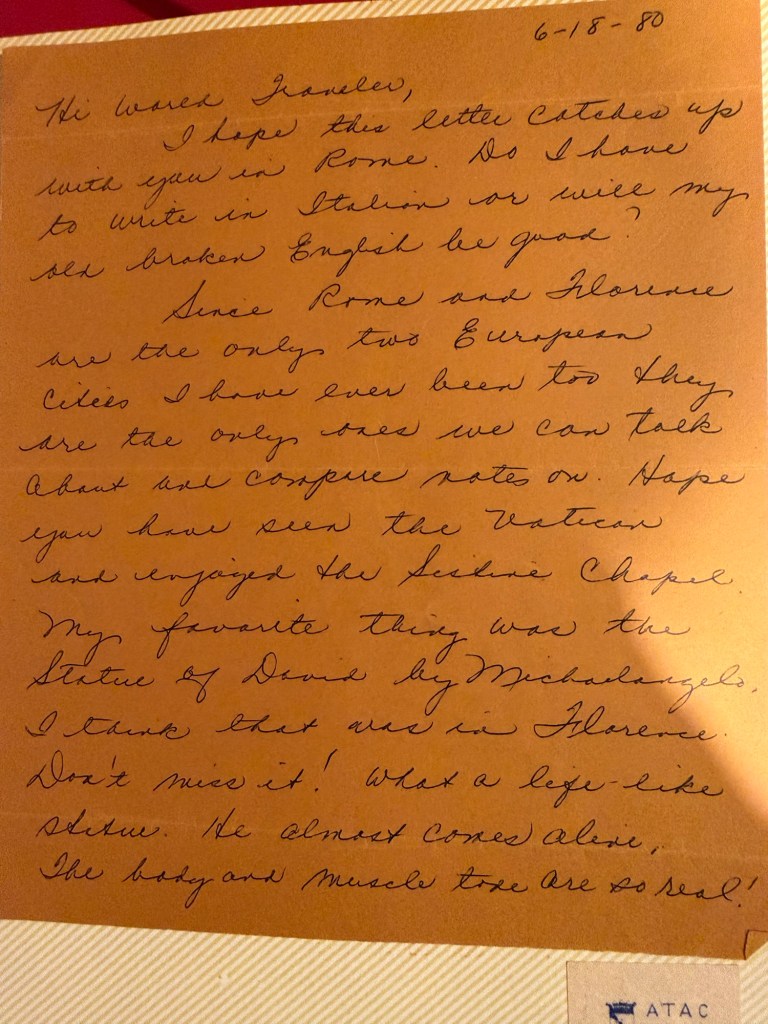 6-18-80
Hi World Traveler,
I hope this letter catches up
with you in Rome. Do I have
to write in Italian or will my
old broken English be good?
Since Rome and Florence
are the only two European
cities I have ever been too they
are the only ones we can talk
about and compare notes on. Hope
you have seen the Vatican
and enjoyed the Sistine Chapel.
My favorite thing was the
Statue of David by Michaelangelo.
I think that was in Florence.
Don't miss it! What a life-like
statue. He almost comes alive,
The body and muscle tone are so real!
ATAC